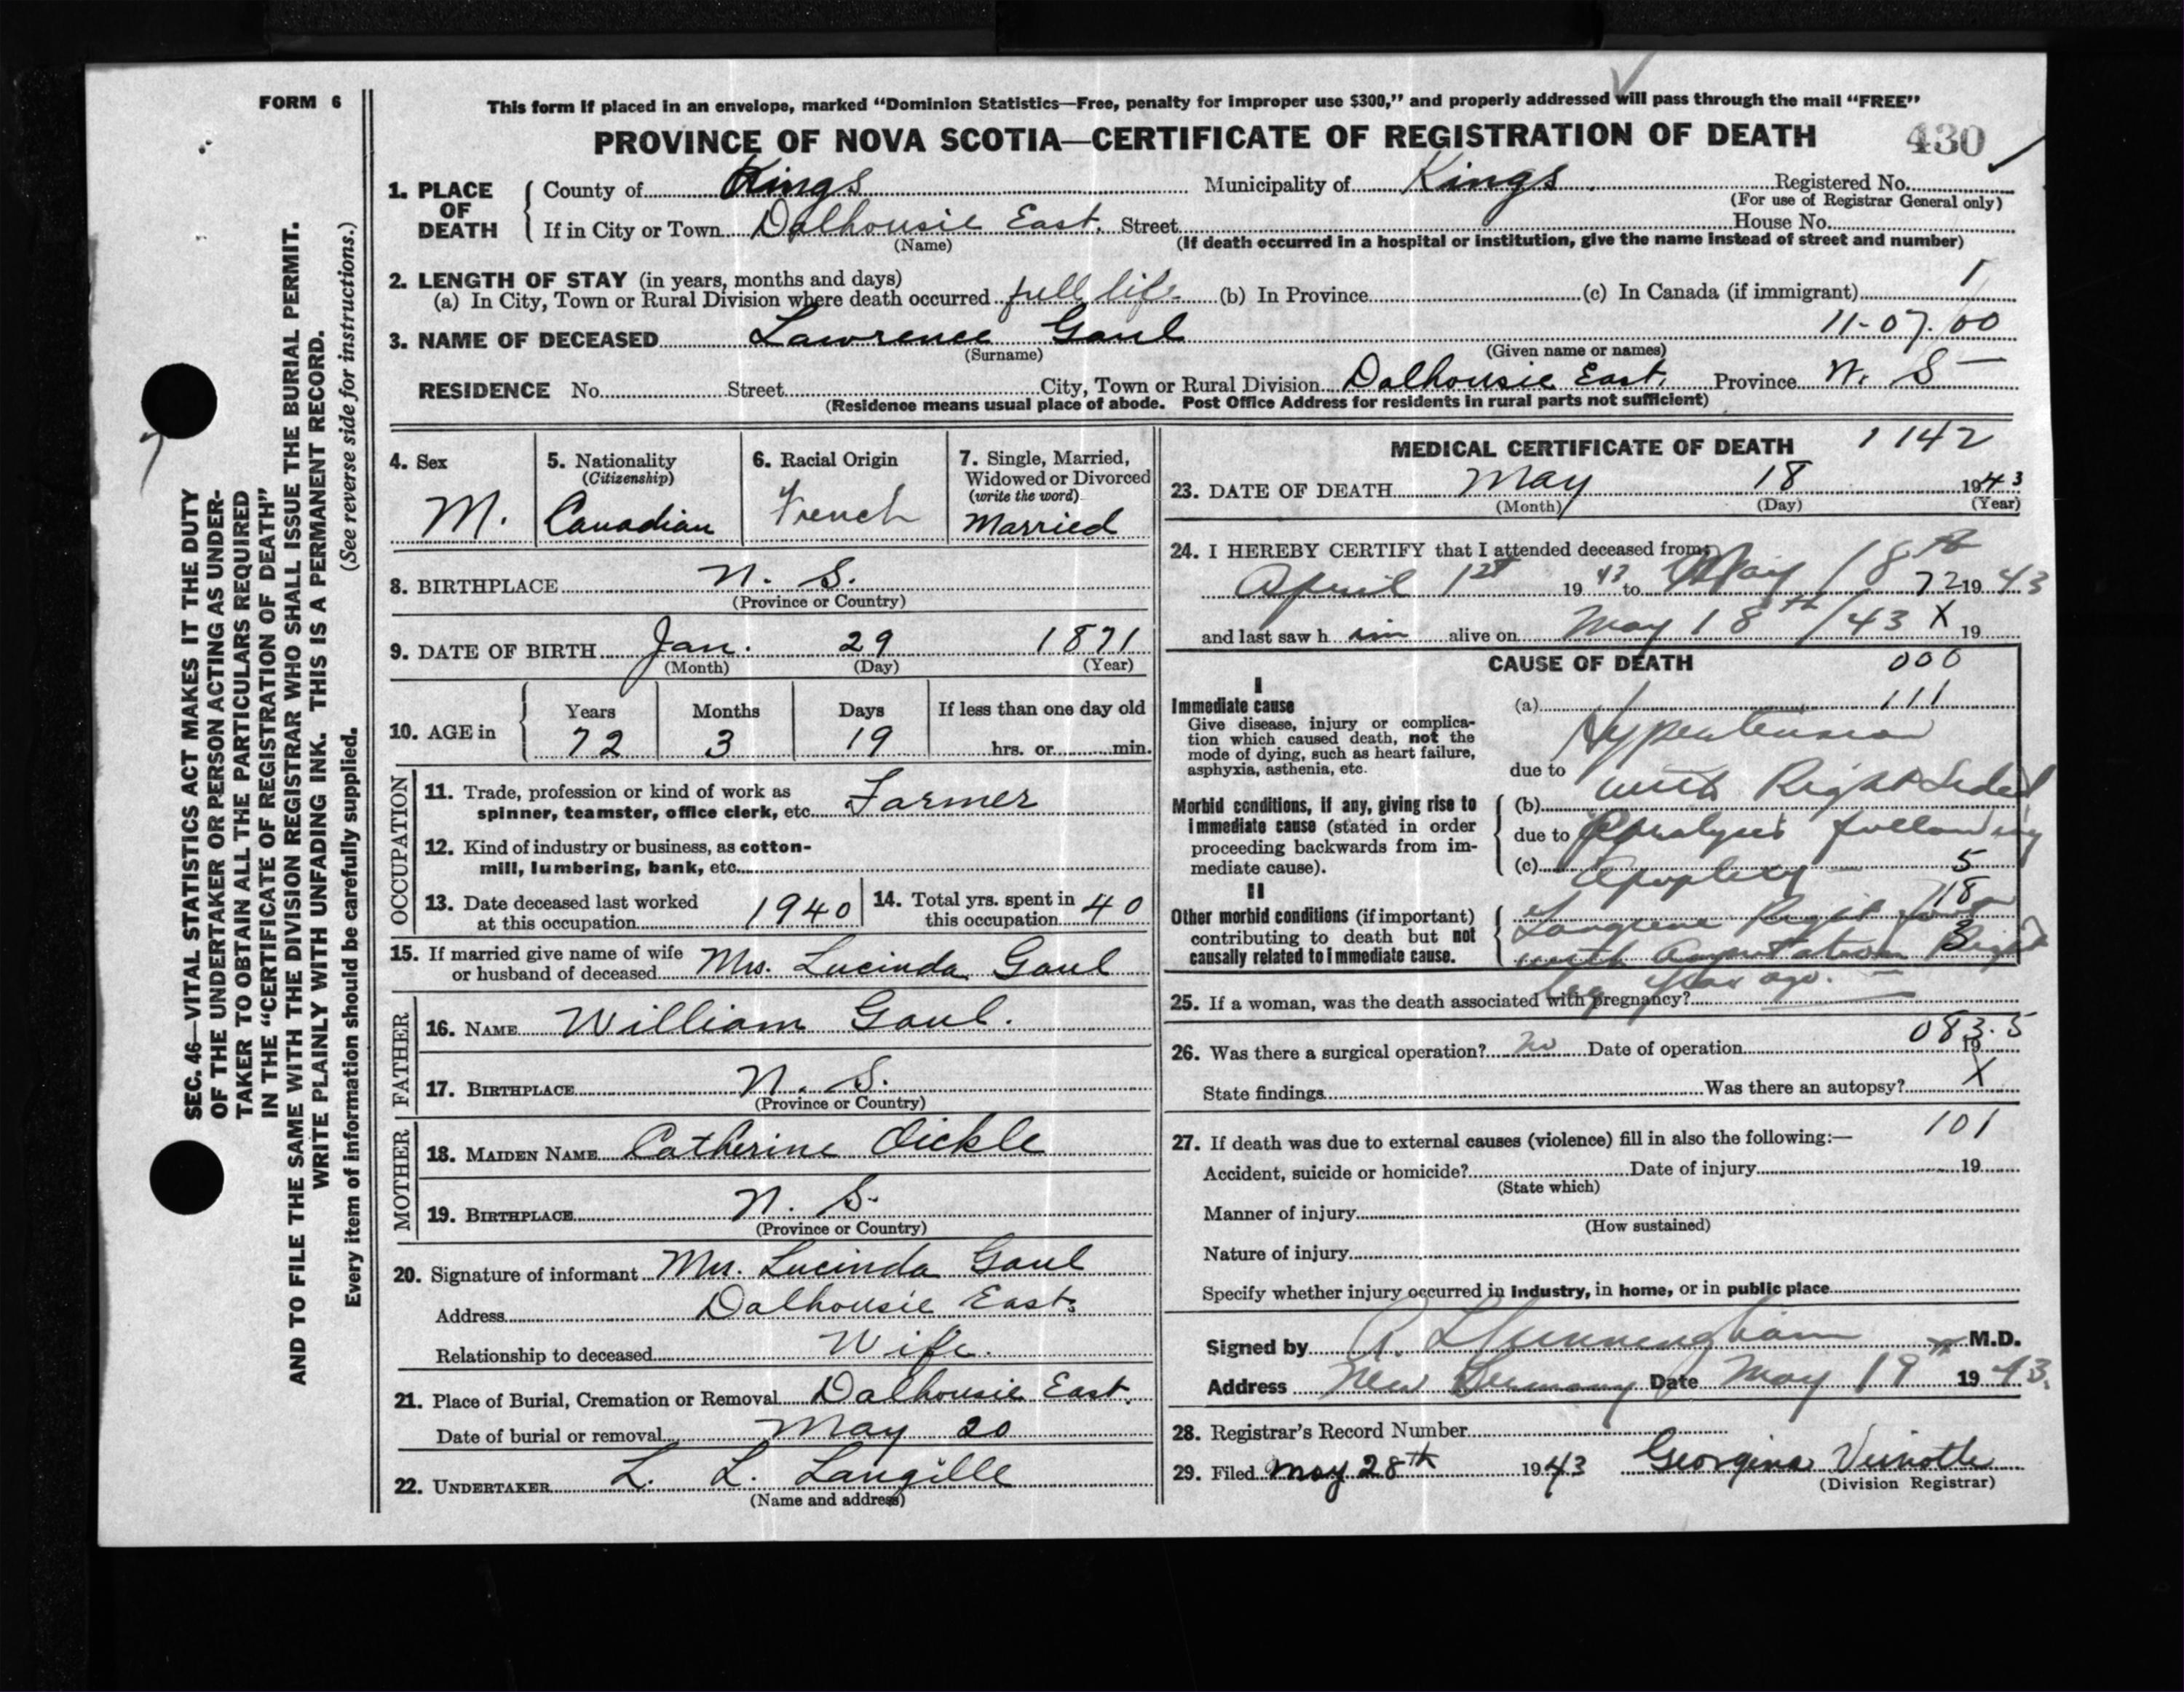 FORM 6
This form if placed in an envelope, marked “Dominion Statistics—Free, penalty for improper use $300,” and properly addressed will pass through the mail “FREE”
PROVINCE OF NOVA SCOTIA—CERTIFICATE OF REGISTRATION OF DEATH 430
1. PLACE OF DEATH County of Kings Municipality of Kings Registered No.
(For use of Registrar General only)
If in City or Town Dalhousie East. Street House No.
(Name) (If death occurred in a hospital or institution, give the name instead of street and number)
2. LENGTH OF STAY (in years, months and days) 1
(a) In City, Town or Rural Division where death occurred full life (b) In Province (c) In Canada (if immigrant)
3. NAME OF DECEASED Lawrence Gaul 11-07.100
(Surname) (Given name or names)
RESIDENCE No. Street City, Town or Rural Division Dalhousie East. Province N. S
(Residence means usual place of abode. Post Office Address for residents in rural parts not sufficient)
4. Sex
M.
5. Nationality
(Citizenship)
Canadian
6. Racial Origin
French
7. Single, Married,
Widowed or Divorced
(write the word)
Married
8. BIRTHPLACE N. S.
(Province or Country)
9. DATE OF BIRTH Jan. 29 1871
(Month) (Day) (Year)
10. AGE in
Years Months Days If less than one day old
72 3 19 hrs. or min.
OCCUPATION
11. Trade, profession or kind of work as
spinner, teamster, office clerk, etc. Farmer
12. Kind of industry or business, as cotton-
mill, lumbering, bank, etc.
13. Date deceased last worked
at this occupation 1940
14. Total yrs. spent in
this occupation 40
15. If married give name of wife
or husband of deceased Mrs. Lucinda Gaul
FATHER
16. NAME William Gaul.
17. BIRTHPLACE N. S.
(Province or Country)
MOTHER
18. MAIDEN NAME Catherine Oickle
19. BIRTHPLACE N. S.
(Province or Country)
20. Signature of informant Mrs. Lucinda Gaul
Address Dalhousie East.
Relationship to deceased Wife.
21. Place of Burial, Cremation or Removal Dalhousie East.
Date of burial or removal May 20
22. UNDERTAKER L. L. Langille
(Name and address)
MEDICAL CERTIFICATE OF DEATH 1142
23. DATE OF DEATH May 18 1943
(Month) (Day) (Year)
24. I HEREBY CERTIFY that I attended deceased from:
April 1st 1943 to May 18th 72 1943
and last saw him alive on May 18th /43 X 19
CAUSE OF DEATH 000
I
Immediate cause
Give disease, injury or complica-
tion which caused death, not the
mode of dying, such as heart failure,
asphyxia, asthenia, etc.
(a) 111
Hypertension
due to
with Right Sided
Morbid conditions, if any, giving rise to
immediate cause (stated in order
proceeding backwards from im-
mediate cause).
(b)
due to Paralysis following
(c) Apoplexy 5
II
Other morbid conditions (if important)
contributing to death but not
causally related to immediate cause.
118
Gangrene Right foot
3
with Amputation Right
leg year ago.
25. If a woman, was the death associated with pregnancy?
26. Was there a surgical operation? No Date of operation 19 083.5
State findings Was there an autopsy? X
27. If death was due to external causes (violence) fill in also the following:— 101
Accident, suicide or homicide? Date of injury 19
(State which)
Manner of injury
(How sustained)
Nature of injury
Specify whether injury occurred in industry, in home, or in public place
Signed by Cunningham M.D.
Address New Germany Date May 19th 1943.
28. Registrar's Record Number
29. Filed May 28th 1943 Georgina Veinotte
(Division Registrar)
SEC. 46—VITAL STATISTICS ACT MAKES IT THE DUTY
OF THE UNDERTAKER OR PERSON ACTING AS UNDER-
TAKER TO OBTAIN ALL THE PARTICULARS REQUIRED
IN THE “CERTIFICATE OF REGISTRATION OF DEATH”
AND TO FILE THE SAME WITH THE DIVISION REGISTRAR WHO SHALL ISSUE THE BURIAL PERMIT.
WRITE PLAINLY WITH UNFADING INK. THIS IS A PERMANENT RECORD.
Every item of information should be carefully supplied. (See reverse side for instructions.)